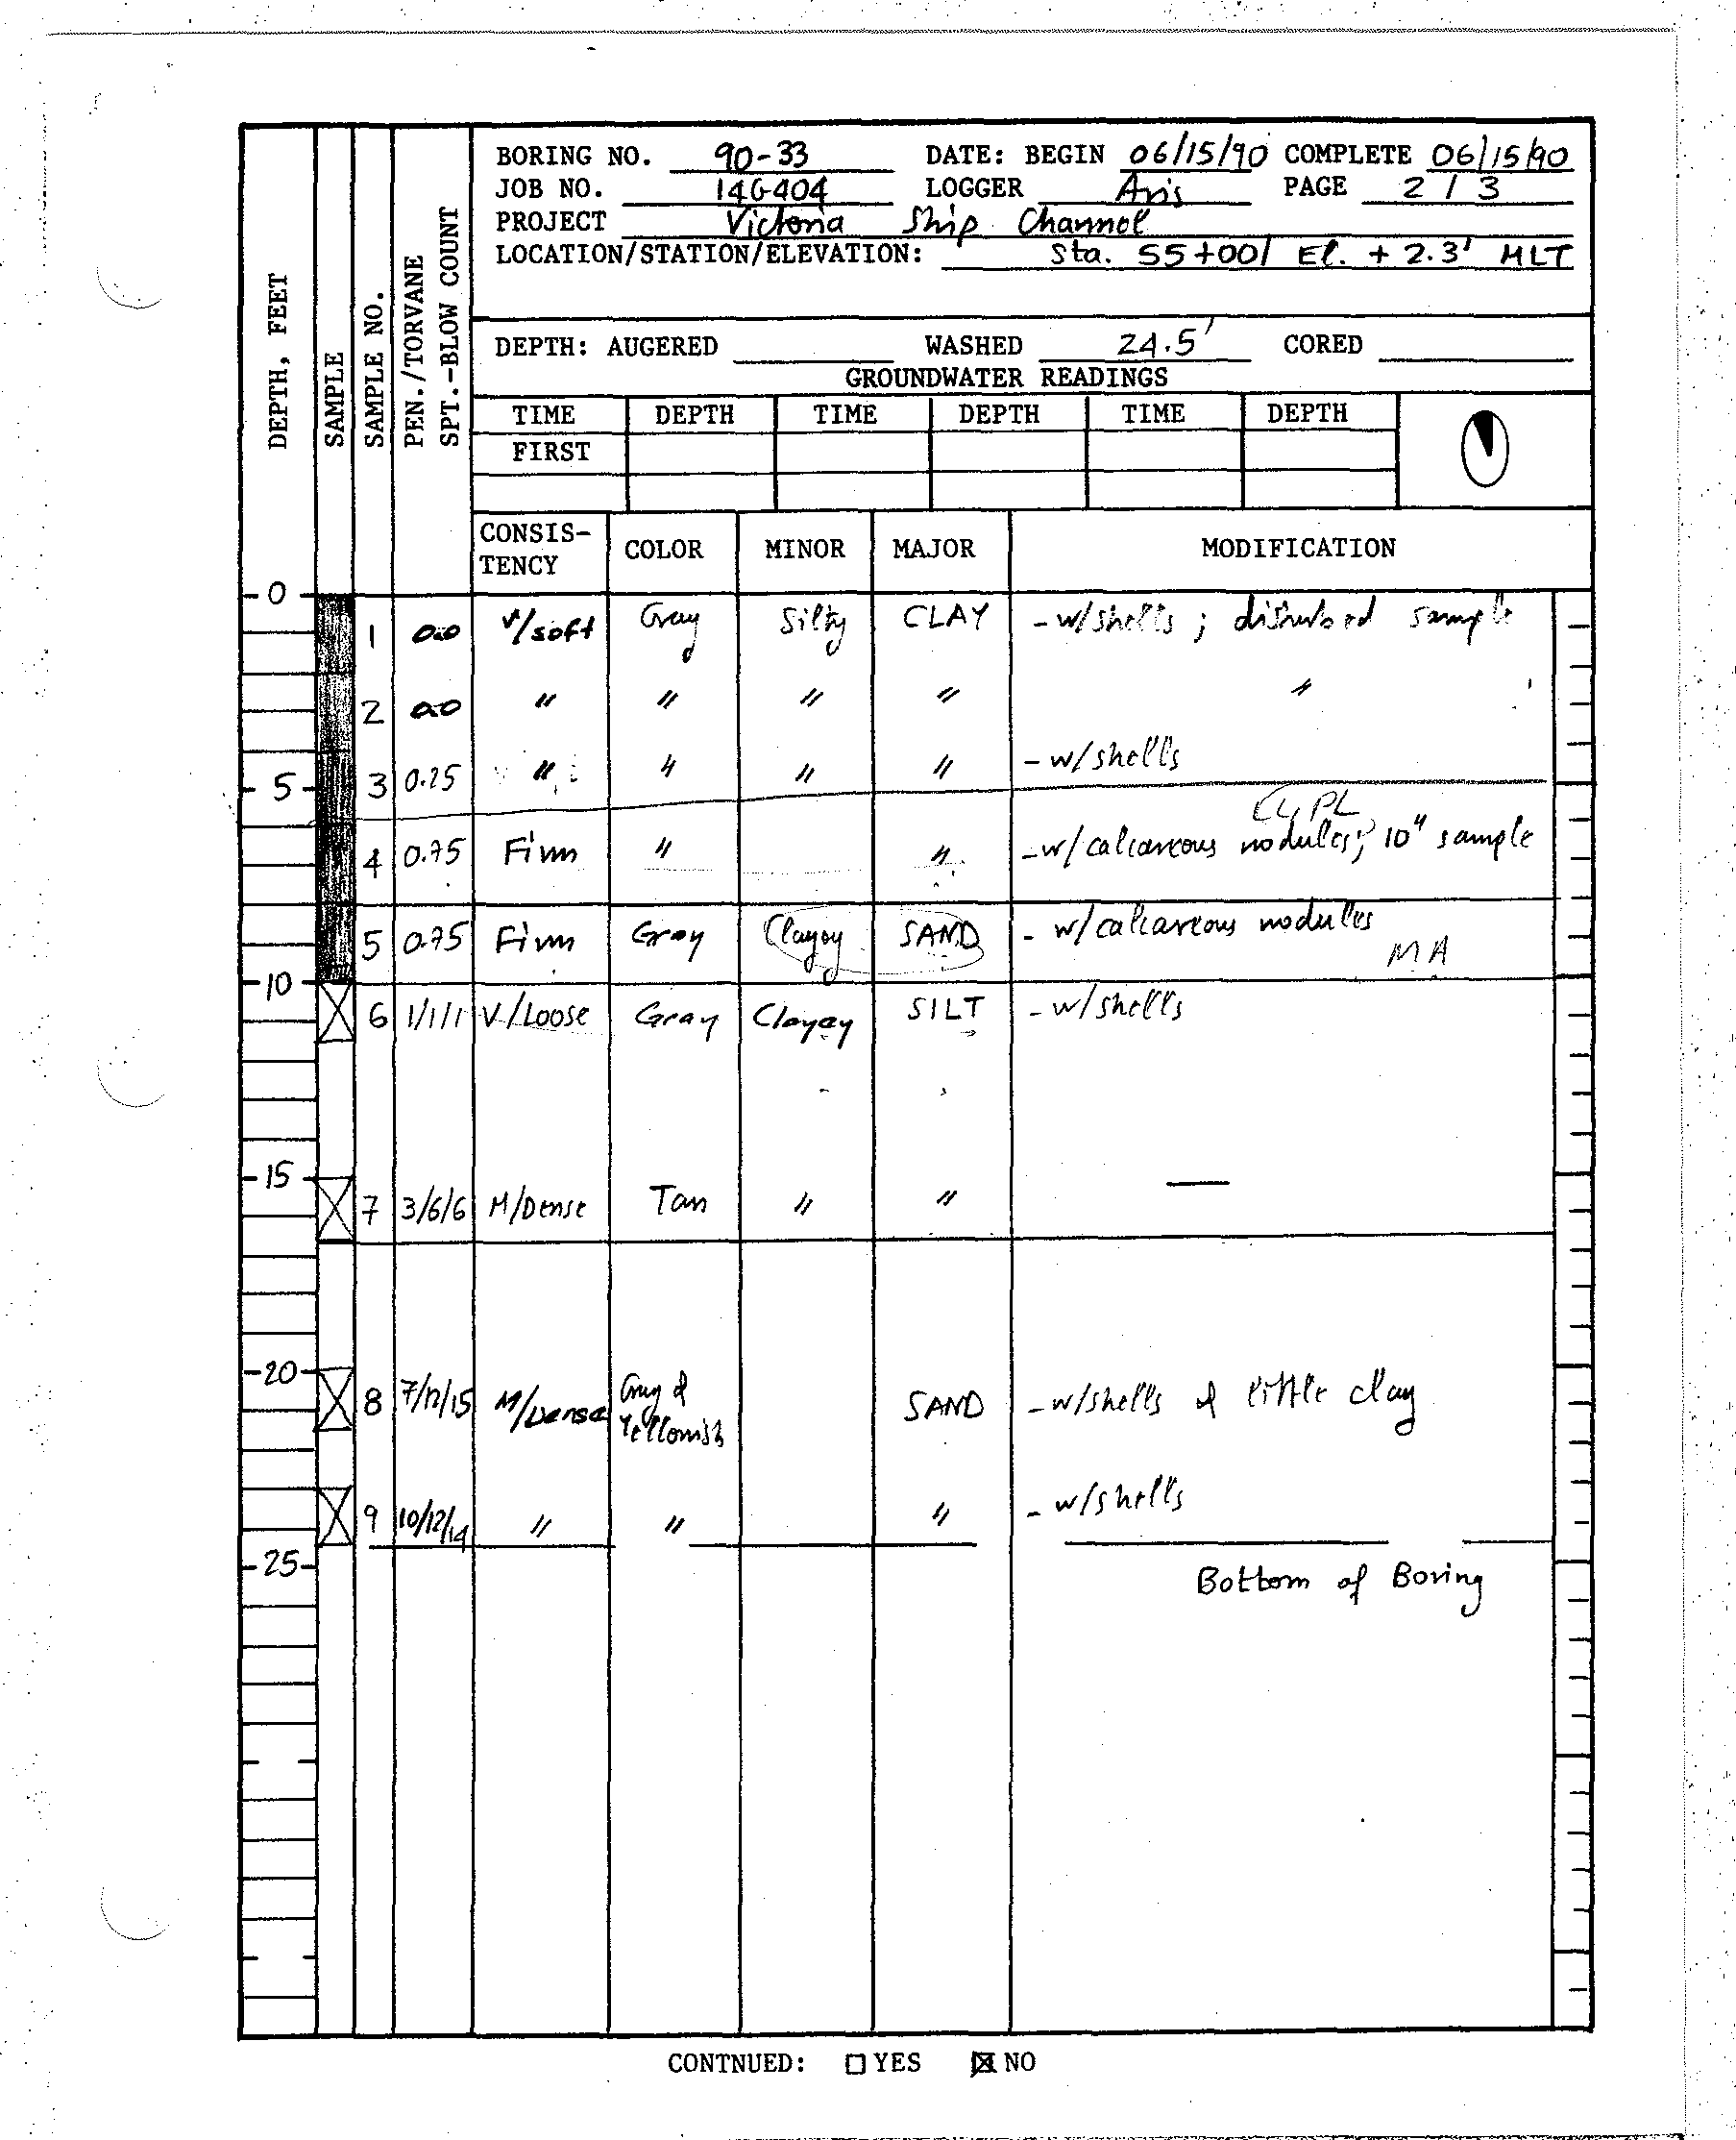 BORING NO. 90-33 DATE: BEGIN 06/15/90 COMPLETE 06/15/90
JOB NO. 14G404 LOGGER Aris PAGE 2 / 3
PROJECT Victoria Ship Channel
LOCATION/STATION/ELEVATION: Sta. 55+00/ El. + 2.3' MLT
DEPTH, FEET
SAMPLE
SAMPLE NO.
PEN./TORVANE
SPT.-BLOW COUNT
DEPTH: AUGERED WASHED 24.5' CORED
GROUNDWATER READINGS
TIME DEPTH TIME DEPTH TIME DEPTH
FIRST
CONSIS-
TENCY COLOR MINOR MAJOR MODIFICATION
0
1 0.0 V/soft Gray Silty CLAY - w/shells ; disturbed sample
2 0.0 " " " " "
5 3 0.25 " " " " - w/shells
4 0.75 Firm " " - w/calcareous nodules; 10" sample
5 0.75 Firm Gray Clayey SAND - w/calcareous nodules
MA
10
6 1/1/1 V/Loose Gray Clayey SILT - w/shells
15
7 3/6/6 M/Dense Tan " " —
20
8 7/12/15 M/Dense Gray & Yellowish SAND - w/shells & little clay
9 10/12/14 " " " - w/shells
25
Bottom of Boring
CONTNUED: YES NO